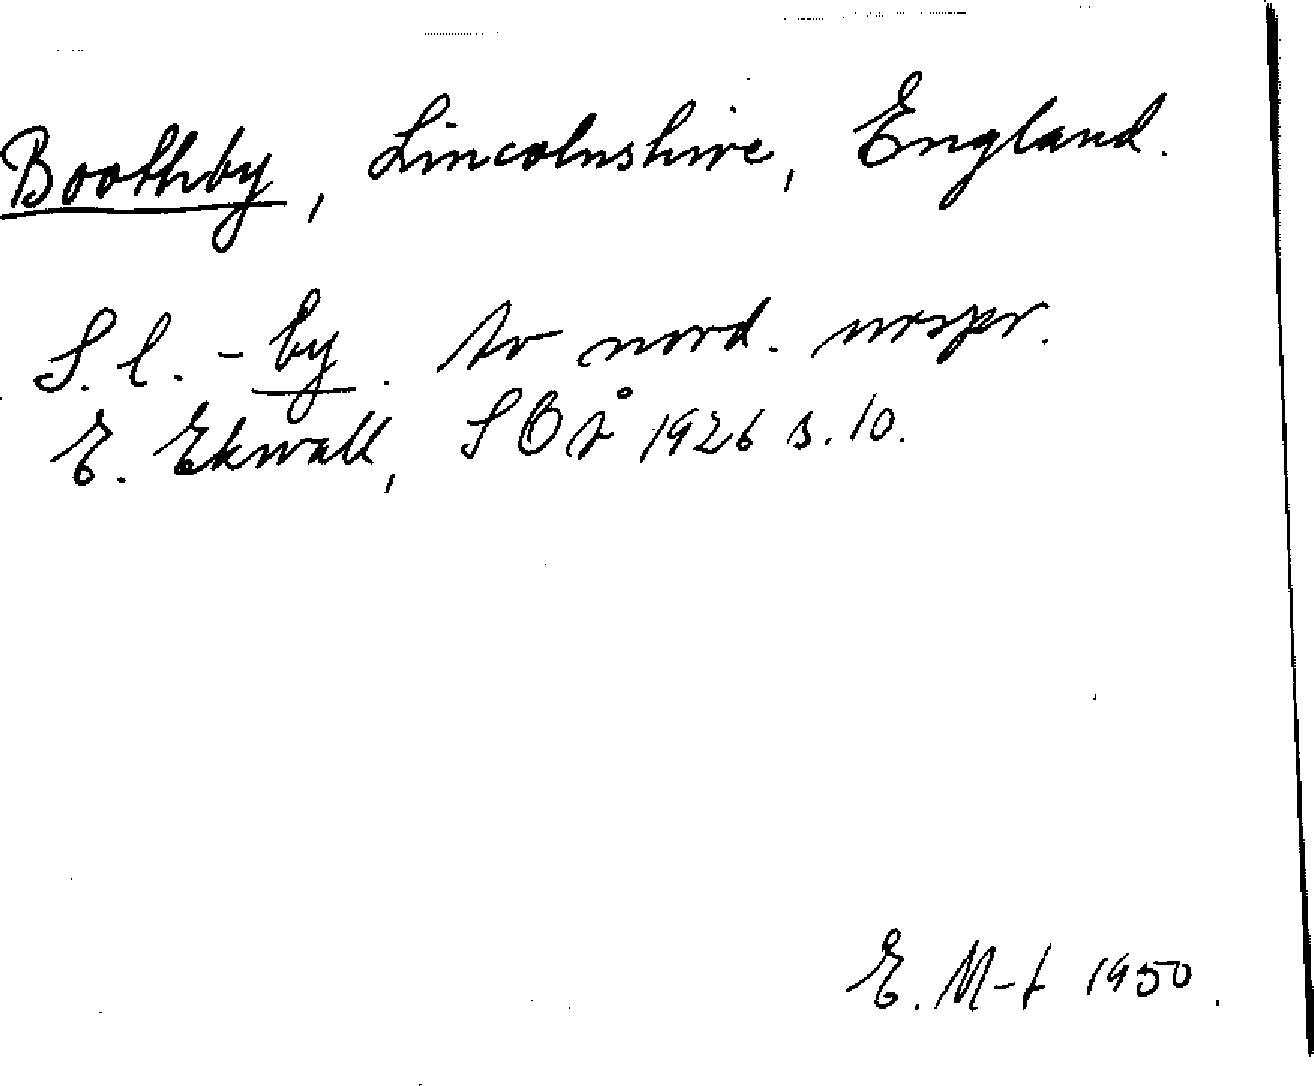 Boothby, Lincolnshire, England.
S. l. -by. Av nord. urspr.
E. Ekwall, SOÅ 1926 s. 10.
E. M-t 1950.